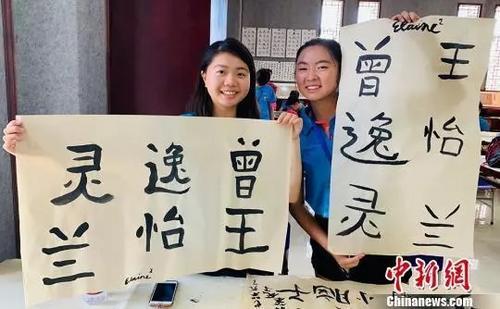 曾逸灵
王怡兰
Elaine²
Elaine²
曾逸灵
王怡兰
中新网
Chinanews.com